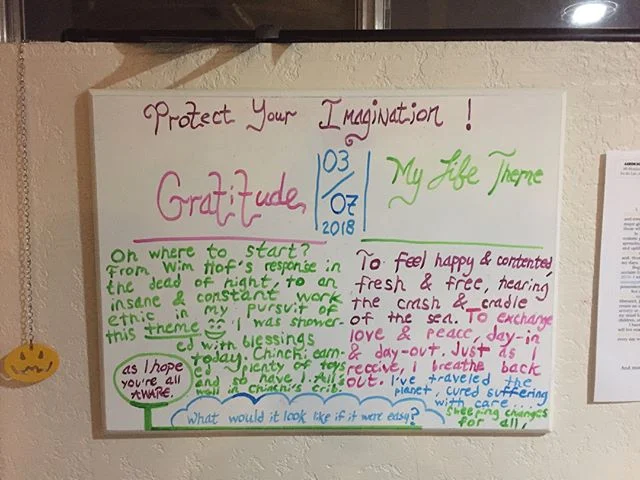 Protect Your Imagination !
Gratitude
03
07
2018
My Life Theme
Oh where to start?
From Wim Hof's response in
the dead of night, to an
insane & constant work
ethic in my pursuit of
this theme I was shower-
ed with blessings
today. Chinchi earn-
ed plenty of toys
and so have I. All's
well in Chinchi's crib.
as I hope
you're all
AWARE.
To feel happy & contented,
fresh & free, hearing
the crash & cradle
of the sea. To exchange
love & peace, day-in
& day-out. Just as I
receive, I breathe back
out. I've traveled the
planet, cured suffering
with care...
Sweeping changes
for all,
What would it look like if it were easy?